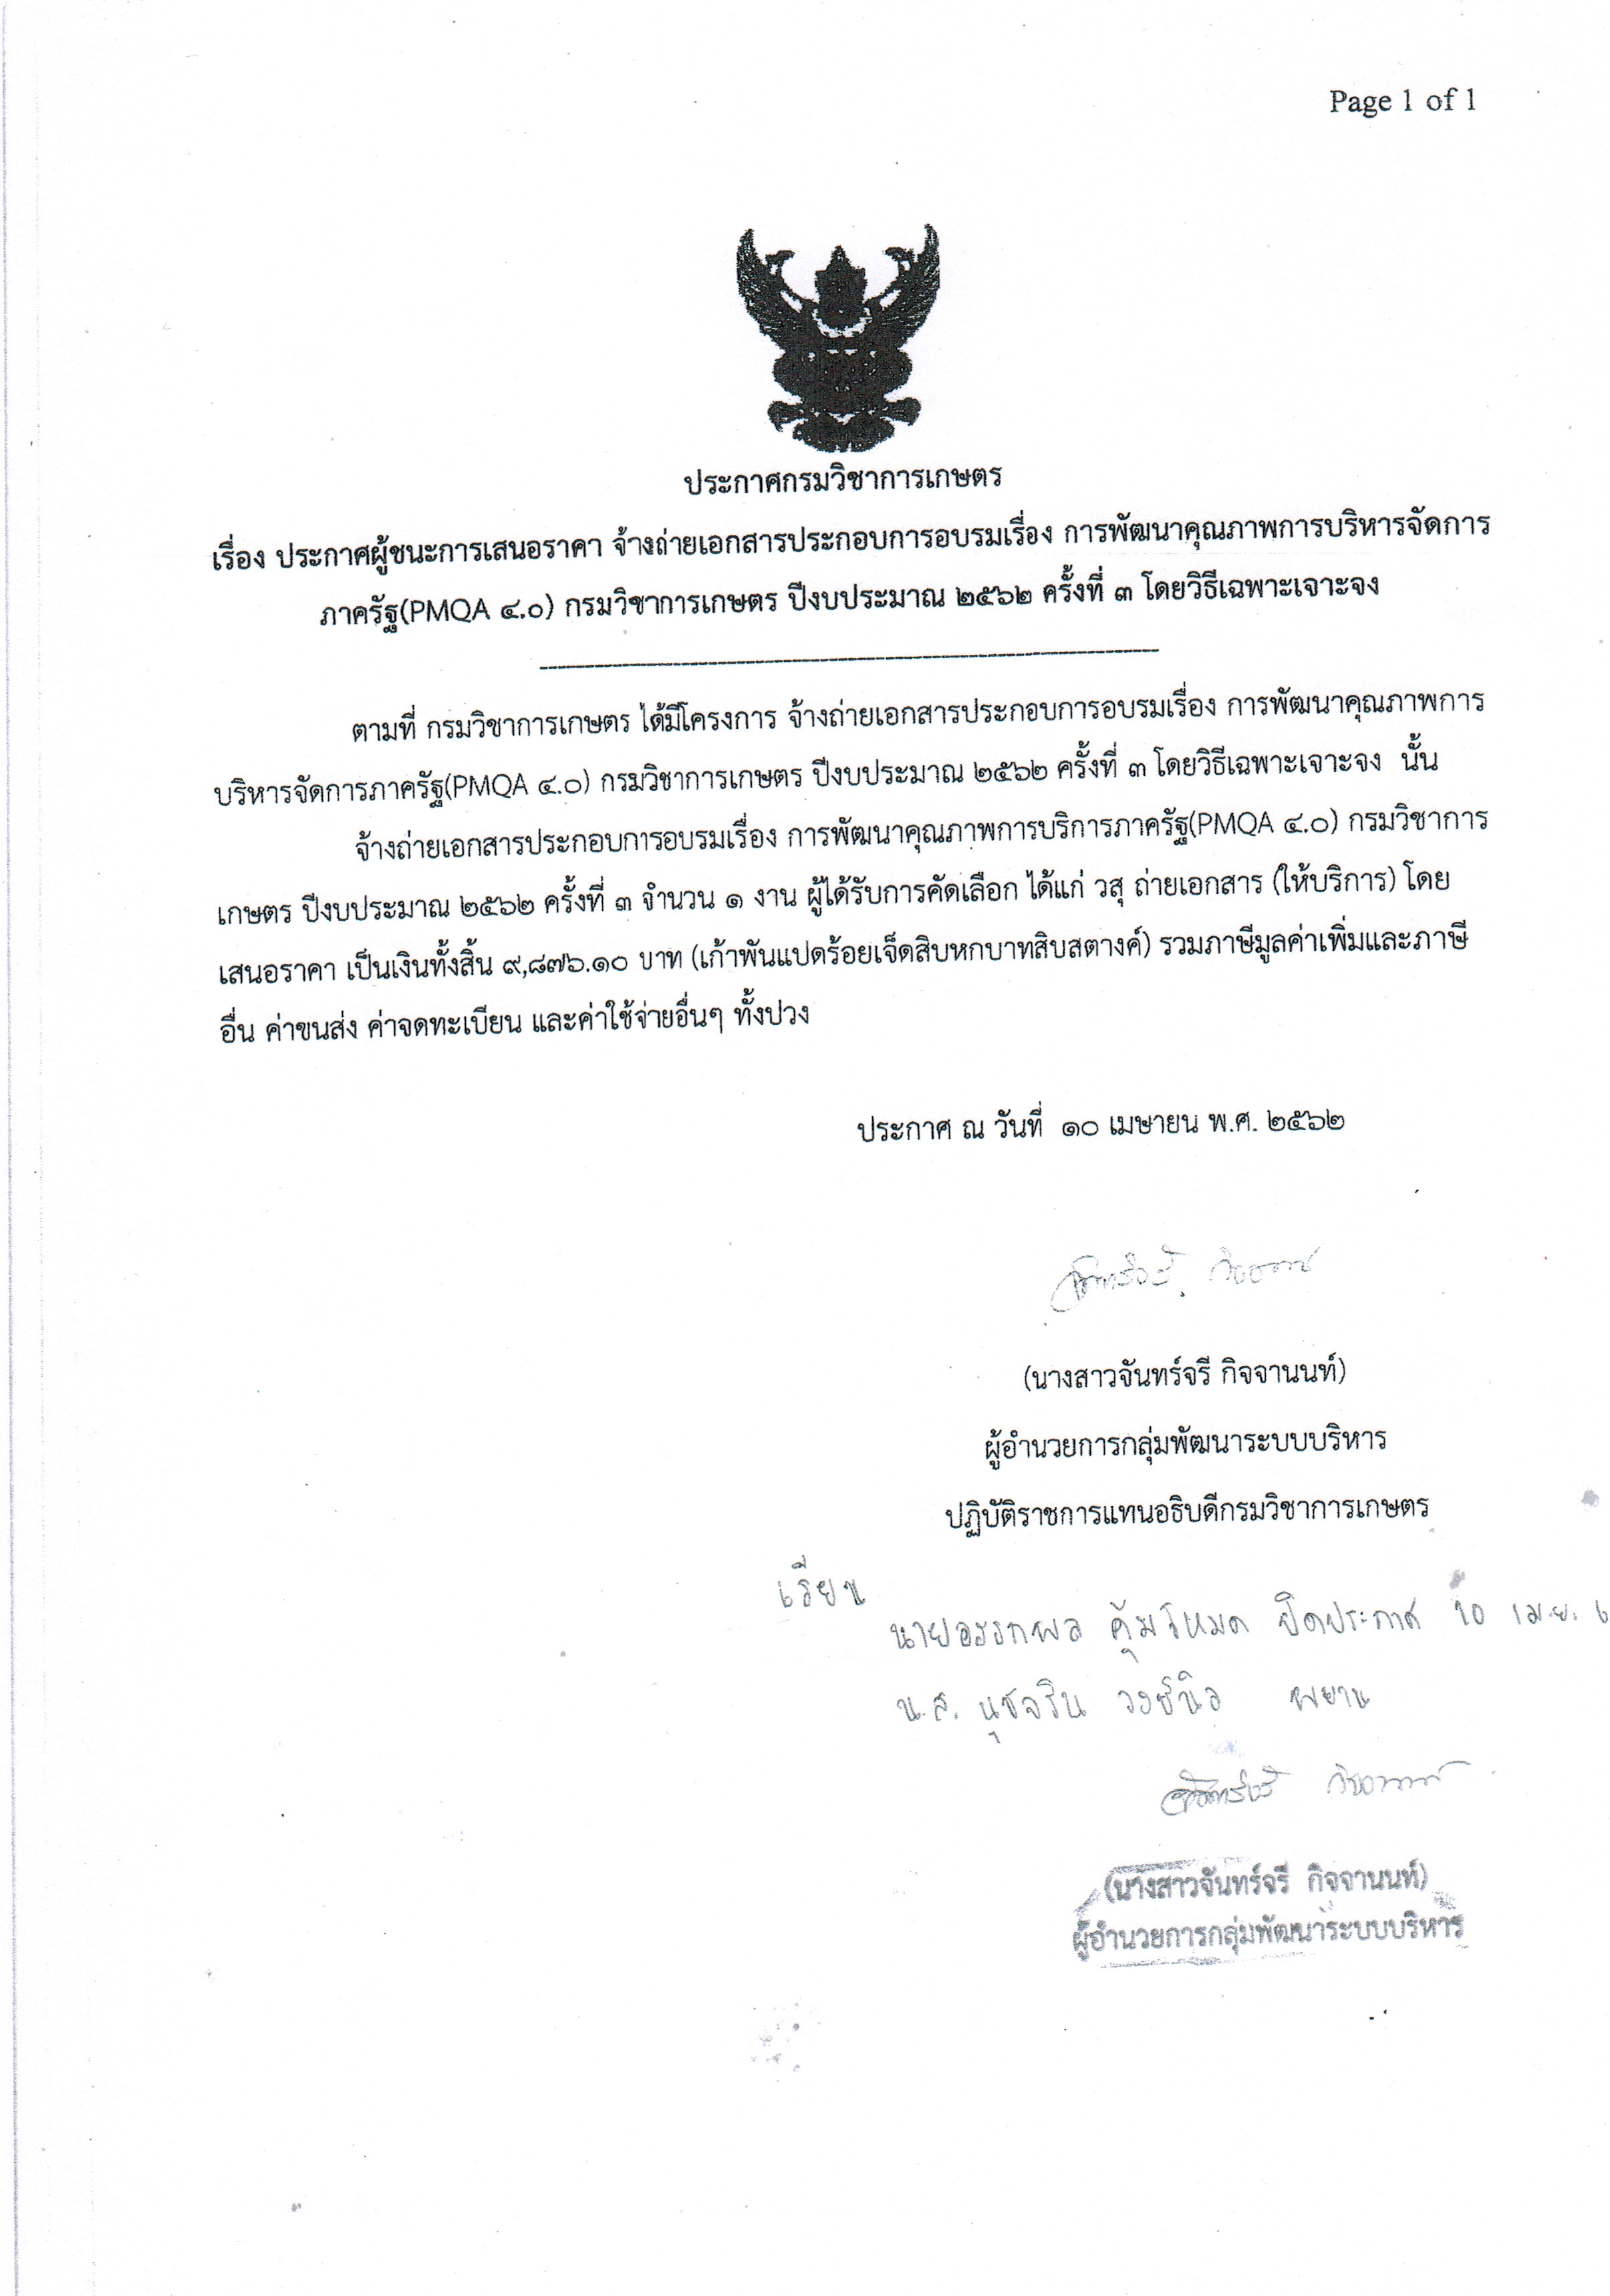 Page 1 of 1
ประกาศกรมวิชาการเกษตร
เรื่อง ประกาศผู้ชนะการเสนอราคา จ้างถ่ายเอกสารประกอบการอบรมเรื่อง การพัฒนาคุณภาพการบริหารจัดการ
ภาครัฐ(PMQA ๔.๐) กรมวิชาการเกษตร ปีงบประมาณ ๒๕๖๒ ครั้งที่ ๓ โดยวิธีเฉพาะเจาะจง
ตามที่ กรมวิชาการเกษตร ได้มีโครงการ จ้างถ่ายเอกสารประกอบการอบรมเรื่อง การพัฒนาคุณภาพการ
บริหารจัดการภาครัฐ(PMQA ๔.๐) กรมวิชาการเกษตร ปีงบประมาณ ๒๕๖๒ ครั้งที่ ๓ โดยวิธีเฉพาะเจาะจง นั้น
จ้างถ่ายเอกสารประกอบการอบรมเรื่อง การพัฒนาคุณภาพการบริการภาครัฐ(PMQA ๔.๐) กรมวิชาการ
เกษตร ปีงบประมาณ ๒๕๖๒ ครั้งที่ ๓ จำนวน ๑ งาน ผู้ได้รับการคัดเลือก ได้แก่ วสุ ถ่ายเอกสาร (ให้บริการ) โดย
เสนอราคา เป็นเงินทั้งสิ้น ๙,๘๗๖.๑๐ บาท (เก้าพันแปดร้อยเจ็ดสิบหกบาทสิบสตางค์) รวมภาษีมูลค่าเพิ่มและภาษี
อื่น ค่าขนส่ง ค่าจดทะเบียน และค่าใช้จ่ายอื่นๆ ทั้งปวง
ประกาศ ณ วันที่ ๑๐ เมษายน พ.ศ. ๒๕๖๒
(นางสาวจันทร์จรี กิจจานนท์)
ผู้อำนวยการกลุ่มพัฒนาระบบบริหาร
ปฏิบัติราชการแทนอธิบดีกรมวิชาการเกษตร
เรียน
นายอรรถพล คุ้มโหมด ปิดประกาศ 10 เม.ย. 6
น.ส. นุชจริน พยาน
(นางสาวจันทร์จรี กิจจานนท์)
ผู้อำนวยการกลุ่มพัฒนาระบบบริหาร